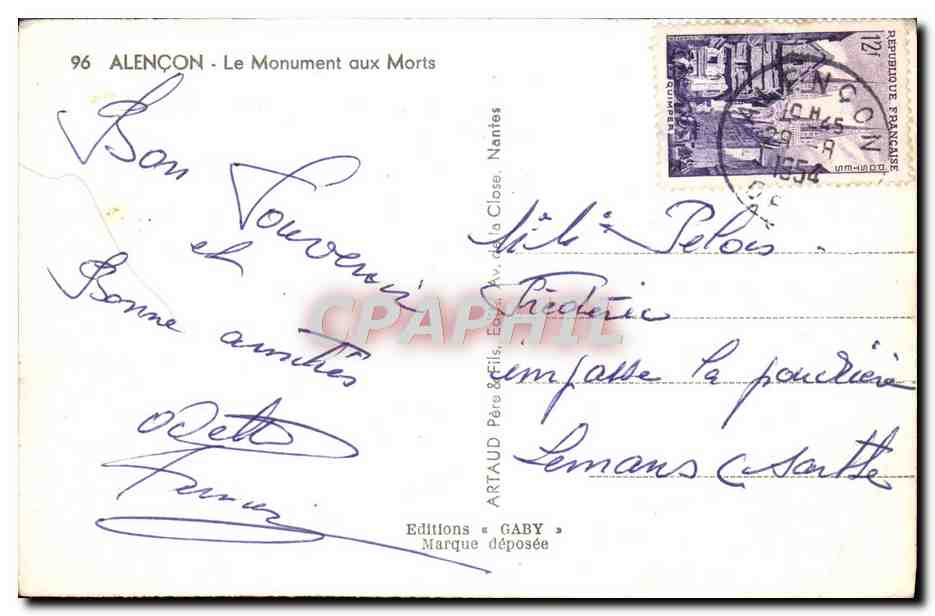 96 ALENÇON - Le Monument aux Morts
Bon
Souvenir
et
Bonne amitiés
Odette
ARTAUD Père & Fils, Edit. Av. de la Close. Nantes
Editions « GABY »
Marque déposée
CPAPHIL
12f
REPUBLIQUE FRANÇAISE
POSTES
QUIMPER
ALENÇON
1954
Pelois
Frédéric
impasse la poudrière
Lemans (Sarthe